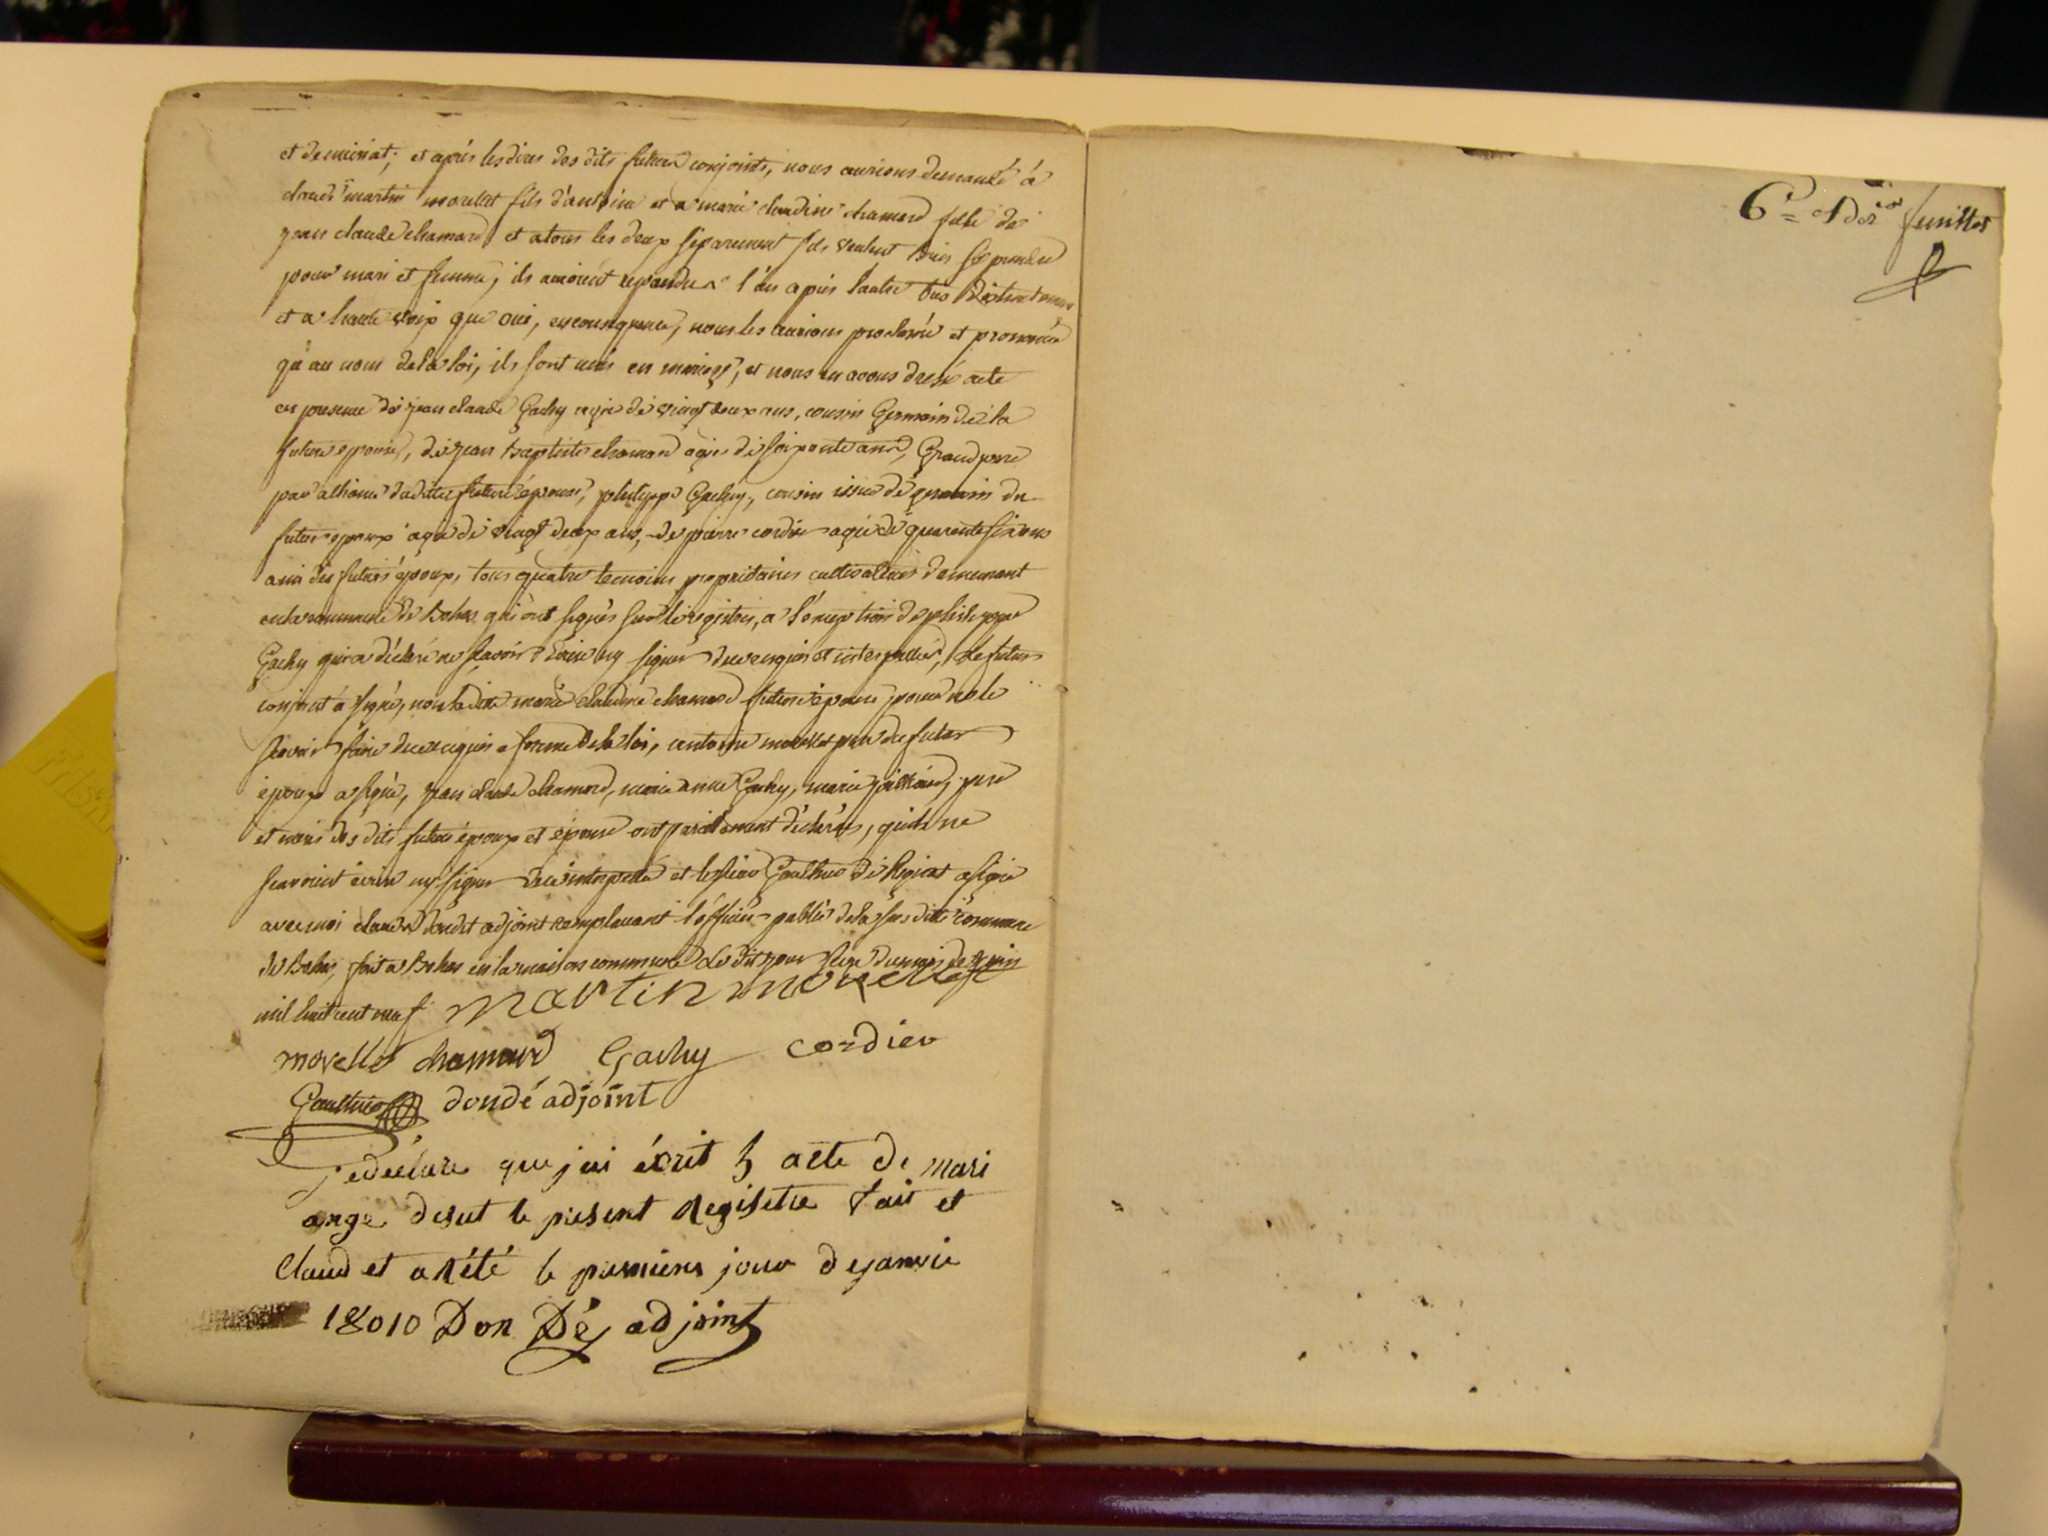 et de miriat; et après les dires des dits futurs conjoints, nous aurions demandé à
claude martin morellet fils d'antoine et a marie claudine chamard fille de
jean claude chamard et a tous les deux séparement s'ils veulent bien se prendre
pour mari et femme, ils auroient repondu l'un après l'autre tres distinctement
et a haute voix que oui, en consequence, nous les aurions proclamé et prononcé
qu'au nom de la loi, ils sont unis en mariage, et nous en avons dressé acte
en presence de jean claude Gachy agé de vingt deux ans, cousin Germain de la
future epouse, de jean Baptiste chamard agé de soixante ans, Grand pere
par alliance de la ditte future épouse, philippe Gachy, cousin issu de germain du
futur epoux agé de vingt deux ans, de pierre cordier agé de quarente six ans
ami des futurs époux, tous quatre temoins propriétaires cultivateurs demeurant
en la commune de Bohas qui ont signés sur le registre, a l'exception de philippe
Gachy qui a déclaré ne scavoir écrire ny signer de ce requis et interpellé, le futur
conjoint a signé, non la dite marie claudine chamard future épouse pour ne le
scavoir faire de ce requis a forme de la loi, antoine morellet pere du futur
époux a signé, jean claude chamard, marie anne Gachy, marie, pere
et meres des dits futurs époux et épouse ont pareillement déclarés, quils ne
scavoient écrire ny signer de ce interpellé et le sieur Gaulthier de a signé
avec moi claude dondet adjoint remplacant l'officier public de la sus ditte commune
de Bohas, fait a Bohas en la maison commune le dit jour du mois de juin
mil huit cent neuf martin morellet
morellet chamard Gachy cordier
Gaulthier dondé adjoint
Je déclare que jai écrit 5 acte de mari
ange desut le present Registre fait et
Claud et arété le premiere jour de janvie
18010 Don Dé adjoint
6e et der feuillet